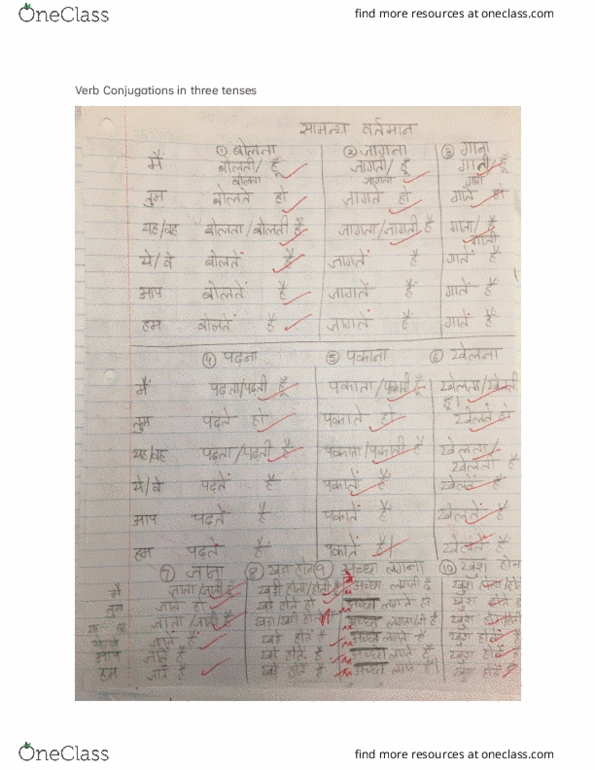 OneClass find more resources at oneclass.com
Verb Conjugations in three tenses
सामन्य वर्तमान
① बोलना ② जागना ③ गाना
मैं बोलती/ हूँ जागती/ हूँ गाती/ हूँ
बोलता जागता गाता
तुम बोलते हो जागते हो गाते हो
यह/वह बोलता/बोलती है जागता/जागती है गाता/ है
गाती
ये/वे बोलतें हैं जागतें हैं गातें हैं
आप बोलतें हैं जागतें हैं गातें हैं
हम बोलतें हैं जागतें हैं गातें हैं
④ पढना ⑤ पकाना ⑥ खेलना
मैं पढ़ता/पढ़ती हूँ पकाता/पकाती हूँ खेलता/खेलती
हूँ।
तुम पढ़ते हो पकाते हो खेलते हो
यह/वह पढ़ता/पढ़ती है पकाता/पकाती है खेलता/
खेलती है
ये/वे पढ़तें हैं पकातें हैं खेलतें हैं
आप पढ़तें हैं पकातें हैं खेलतें हैं
हम पढ़तें हैं पकातें हैं खेलतें हैं
⑦ जाना ⑧ खड़ा होना 9 अच्छा लगना ⑩ खुश होन
मैं जाता/जाती हूँ
तुम जाते हो खड़े होते हो अच्छा लगते हो खुश होते हो
जाता/जाती है
ये/वे जातें हैं खड़े होतें हैं अच्छा लगतें हैं खुश होतें हैं
आप जातें हैं खड़े होतें हैं अच्छा लगतें हैं खुश होतें हैं
हम जातें हैं खड़े होतें हैं अच्छा लगतें हैं खुश होतें
OneClass find more resources at oneclass.com